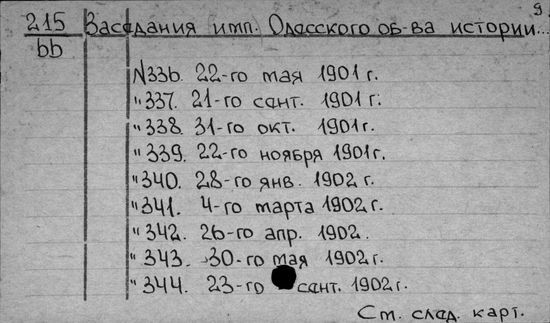 9
215 Заседания имп. Одесского об-ва истории...
bb
N336. 22-го мая 1901 г.
"337. 21-го сент. 1901 г.
"338. 31-го окт. 1901 г.
"339. 22-го ноября 1901 г.
"340. 28-го янв. 1902 г.
"341. 4-го марта 1902 г.
"342. 26-го апр. 1902.
"343. 30-го мая 1902 г.
"344. 23-го сент. 1902 г.
См. след. карт.